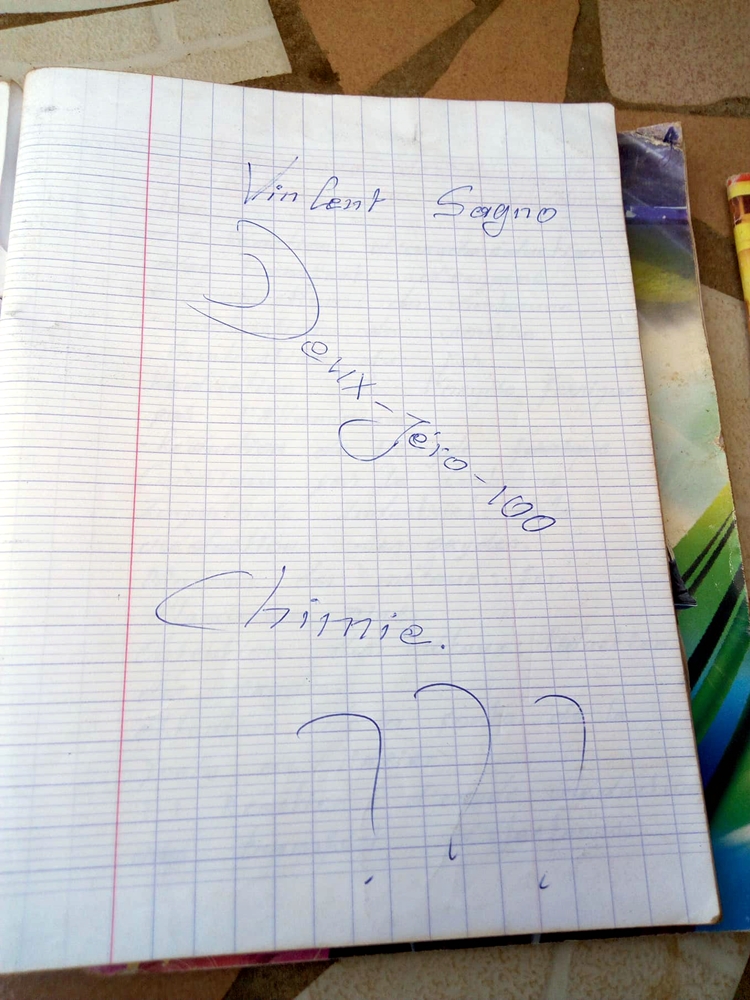 Vincent Sagno
Deux-Zéro-100
Chimie.
???